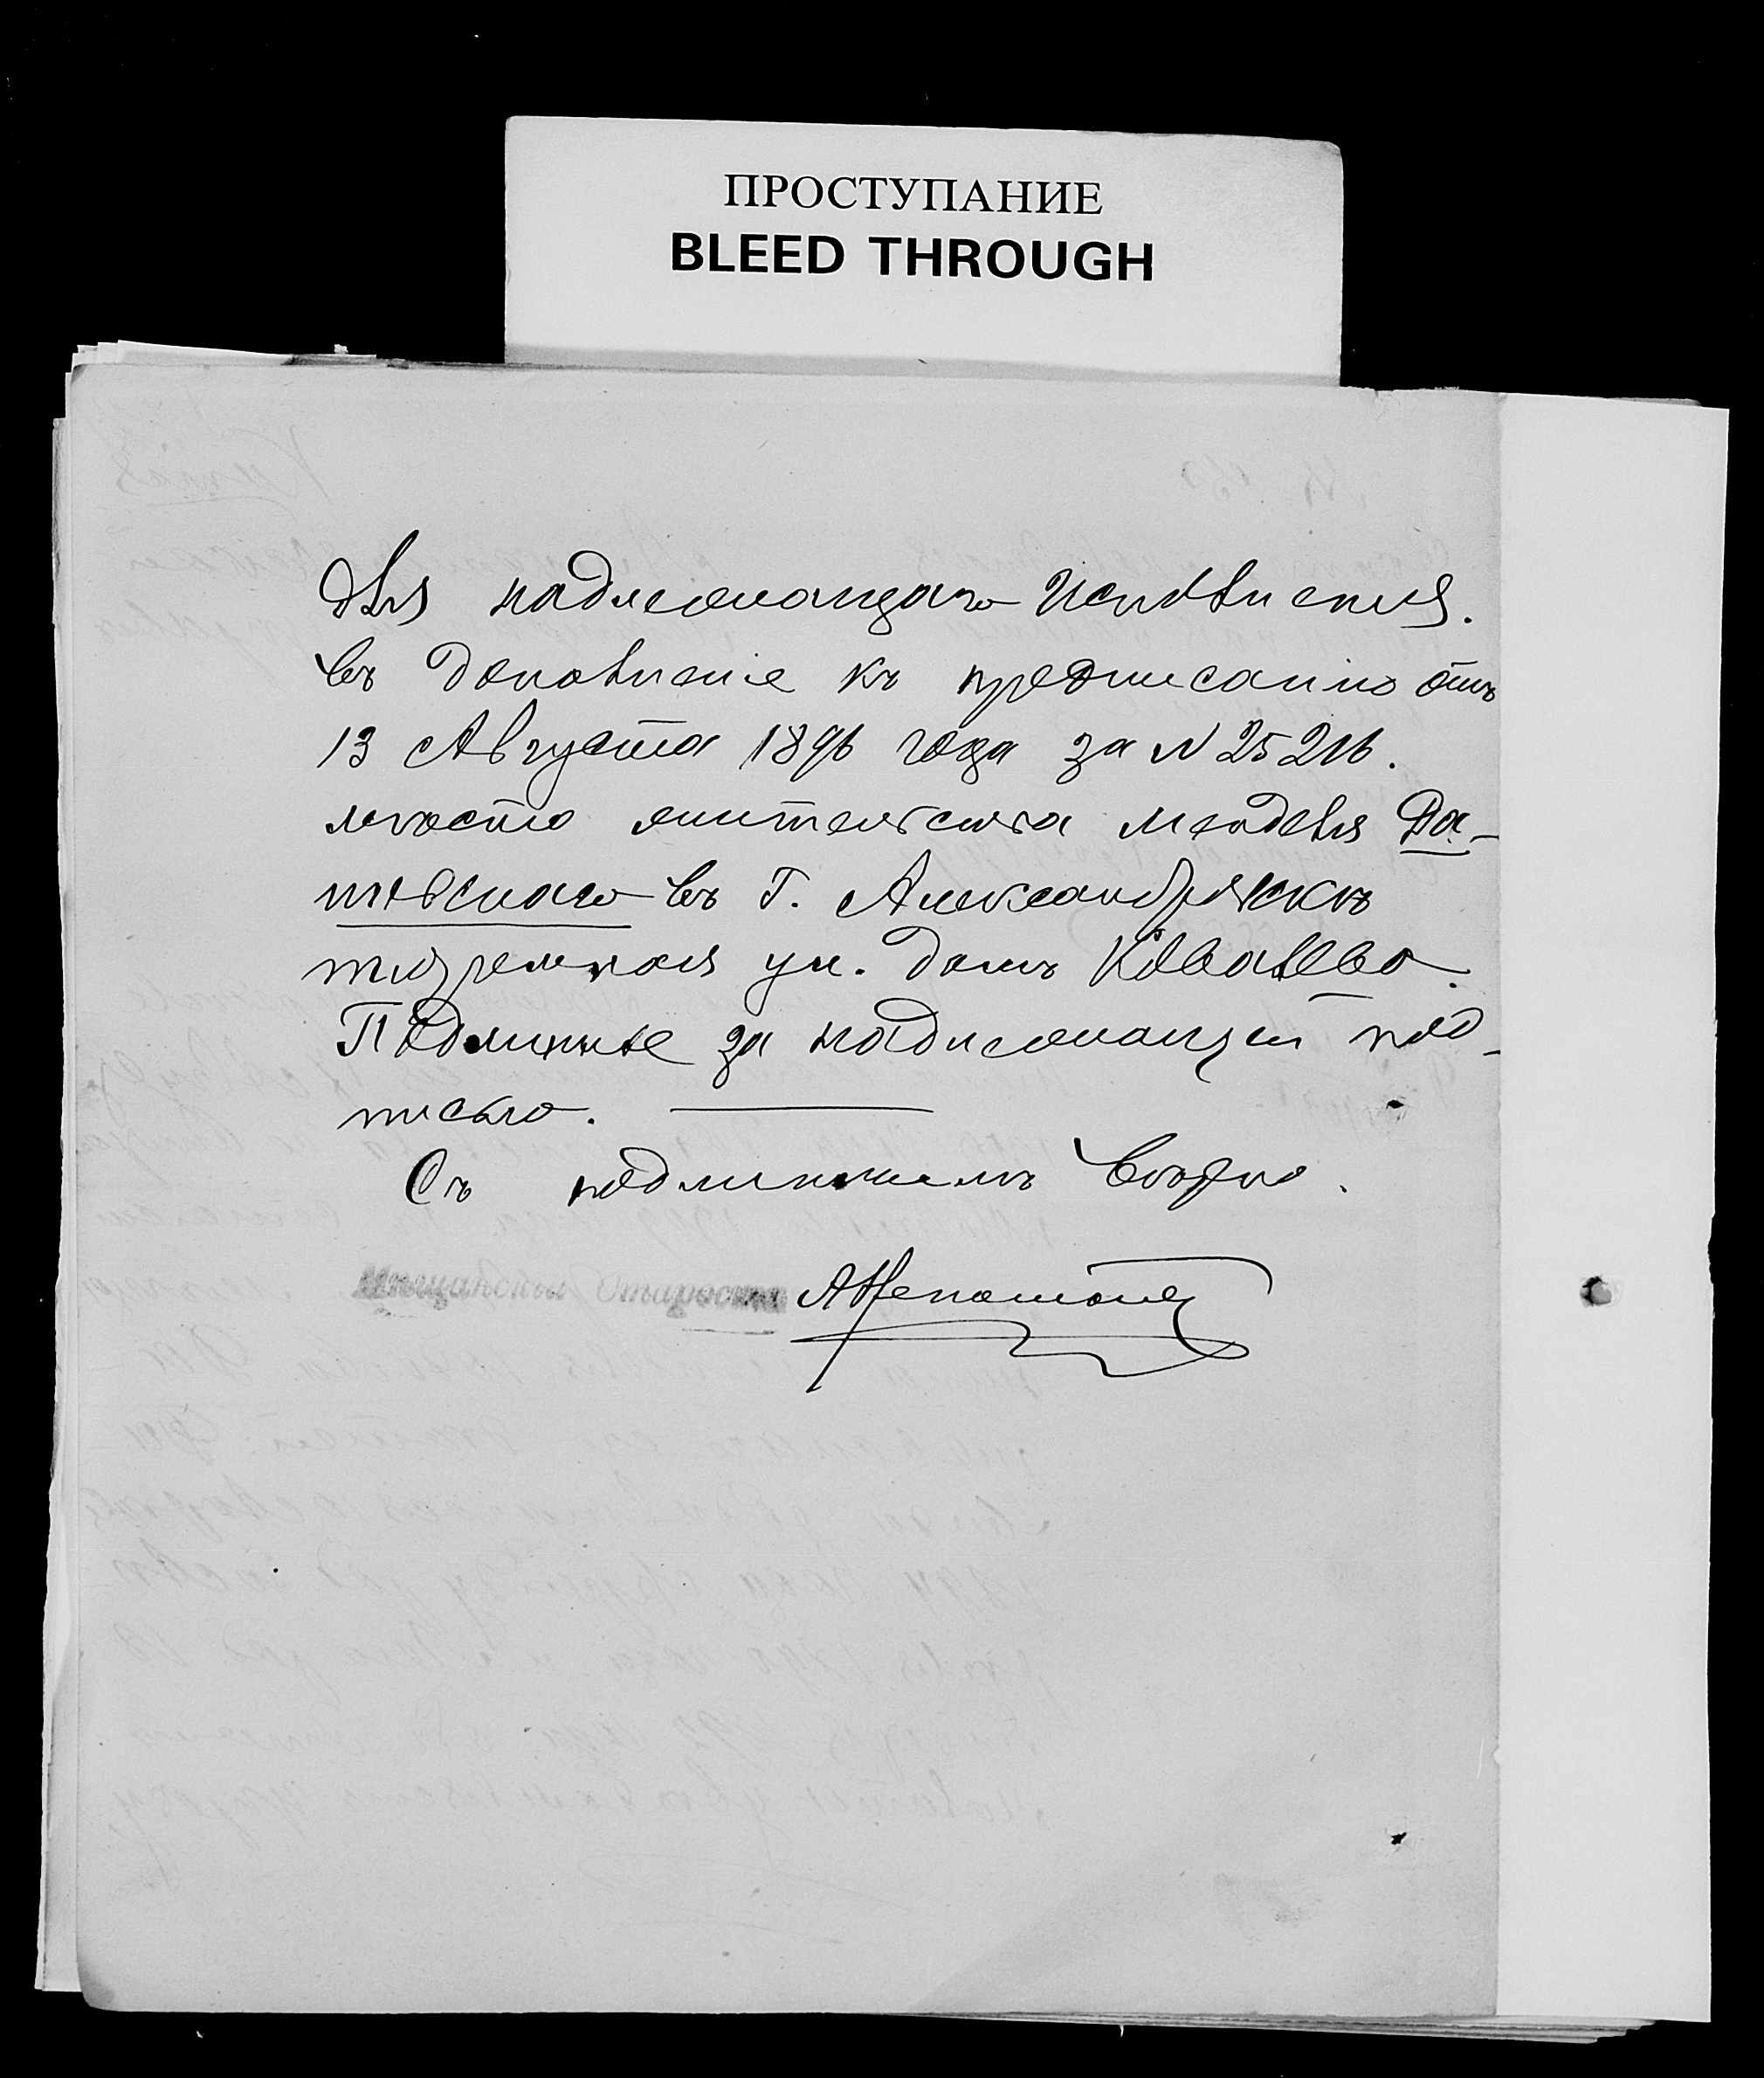 ПРОСТУПАНИЕ
BLEED THROUGH
для надлежащаго исполнения.
въ дополнение къ предписанию отъ
13 Августа 1896 года за N 25216.
место жительства Менделя Да-
шевскаго въ г. Александрийскъ
тюремная ул. домъ Ковалева.
Подлинное за надлежащей под-
писью.
Съ подлиннымъ верно.
Мещанский Староста